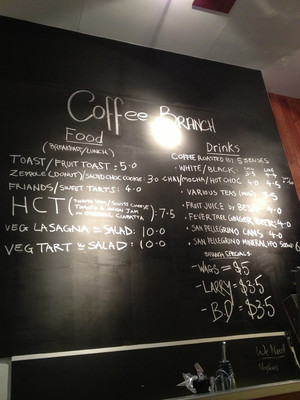 Coffee BRANCH
Food
(BREAKFAST/LUNCH)
TOAST/FRUIT TOAST = 5.0
ZEPPOLE (DONUT)/SALTED CHOC COOKIE: 3.0
FRIANDS/SWEET TARTS: 4.0
HCT 7.5
TOMATO & ONION JAM
CIABATTA
VEG LASAGNA w SALAD: 10.0
VEG TART w SALAD: 10.0
Drinks
COFFEE ROASTED BY 5 SENSES
• WHITE/BLACK:
CHAI/MOCHA/HOT CHOC 4.0
• VARIOUS TEAS
• FRUIT JUICE by 4.0
• FEVER TREE GINGER BEER: 4.0
• SAN PELLEGRINO CANS 4.0
• SAN PELLEGRINO MINERAL H2O
SPECIALS
- WAGS = $5
- LARRY = $3.5
- B.D = $3.5
We Need